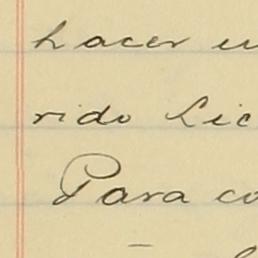 hacer
rido Lic
Para co